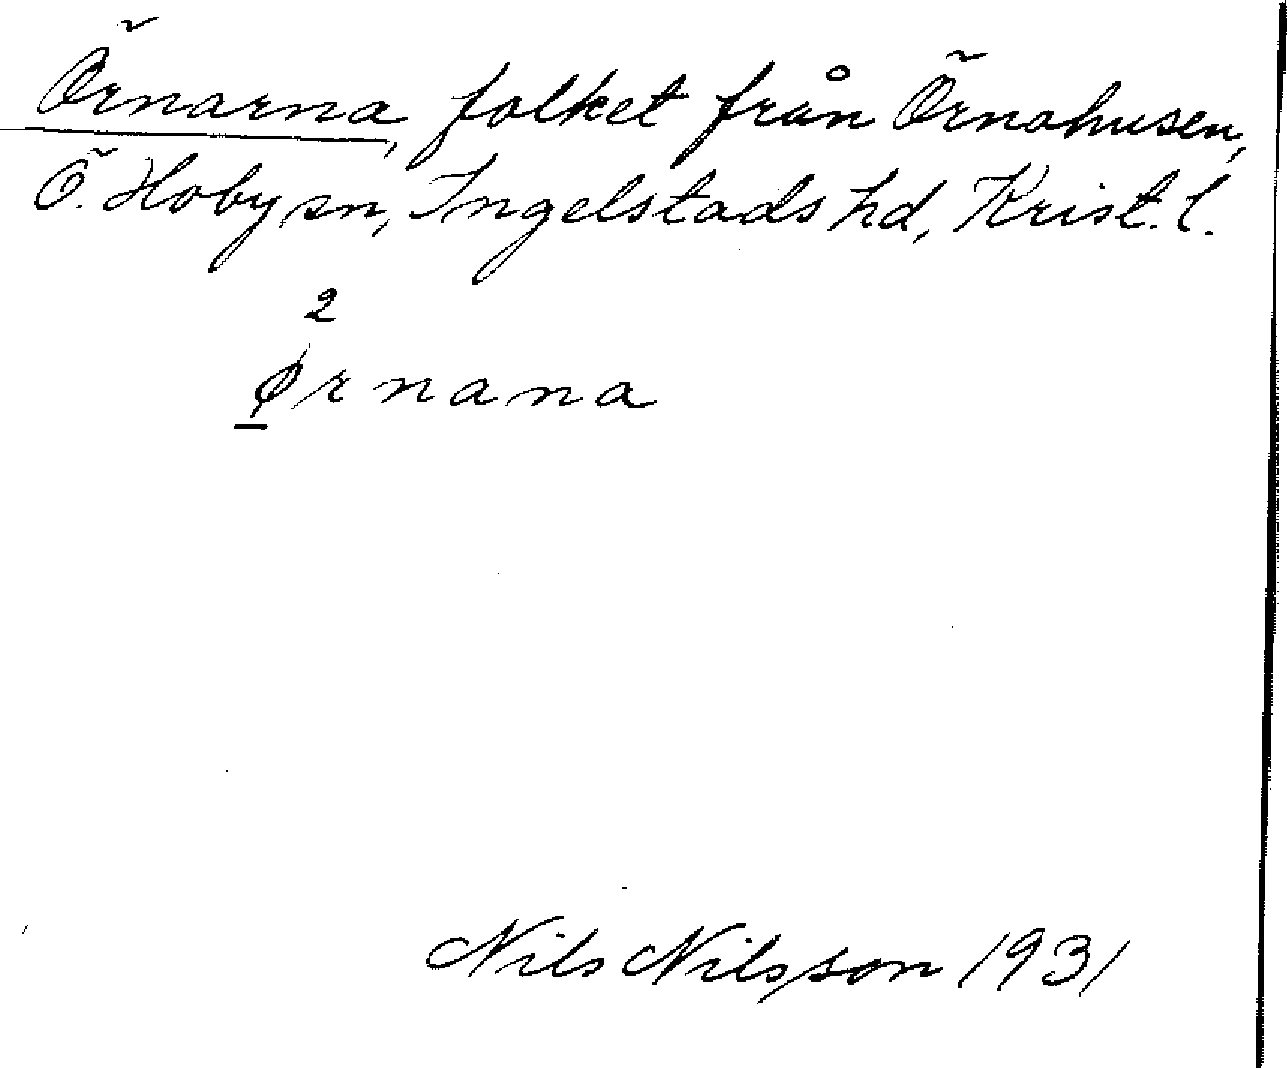 Örnarna, folket från Örnahusen,
Ö. Hoby sn, Ingelstads hd, Krist. l.
2
ørnana
Nils Nilsson 1931